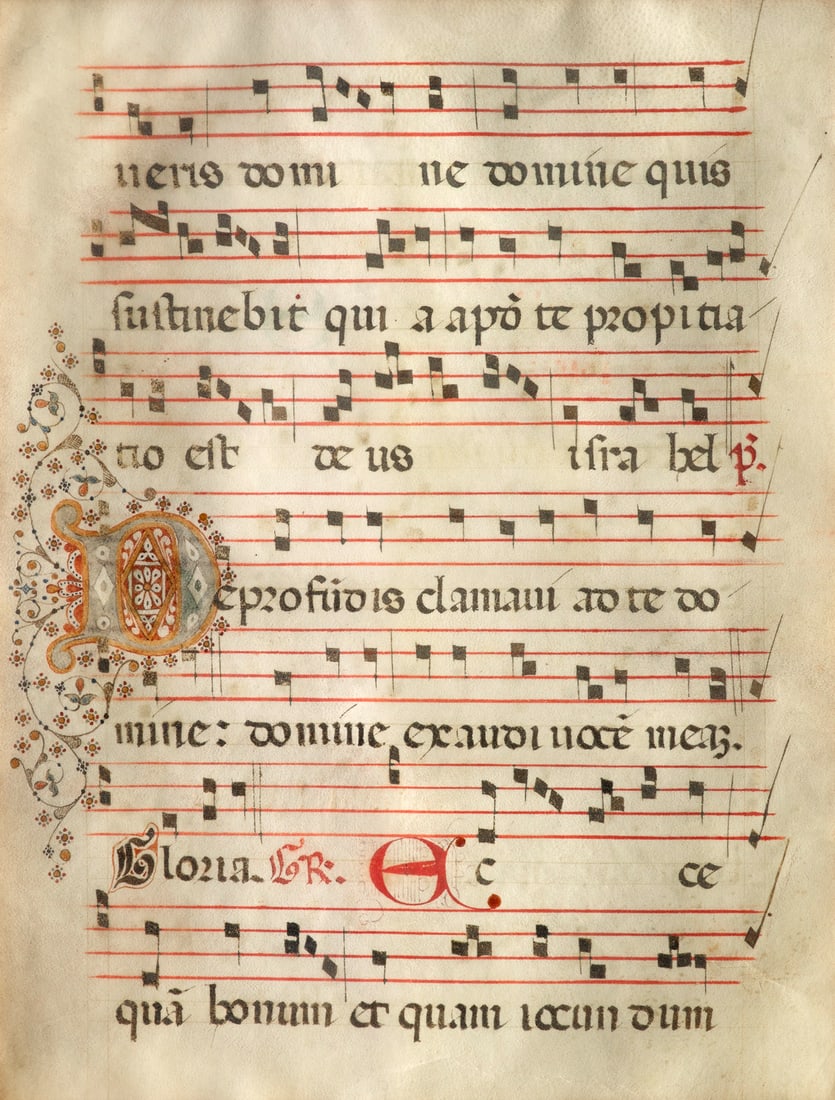 ueris domi ne domine quis
sustinebit qui a apō te propitia
tio est de us isra hel p̄.
De profūdis clamaui ad te do
mine: domine exaudi uocē meaꝫ.
Gloria. GR. Ec ce
quā bonum et quam iocun dum